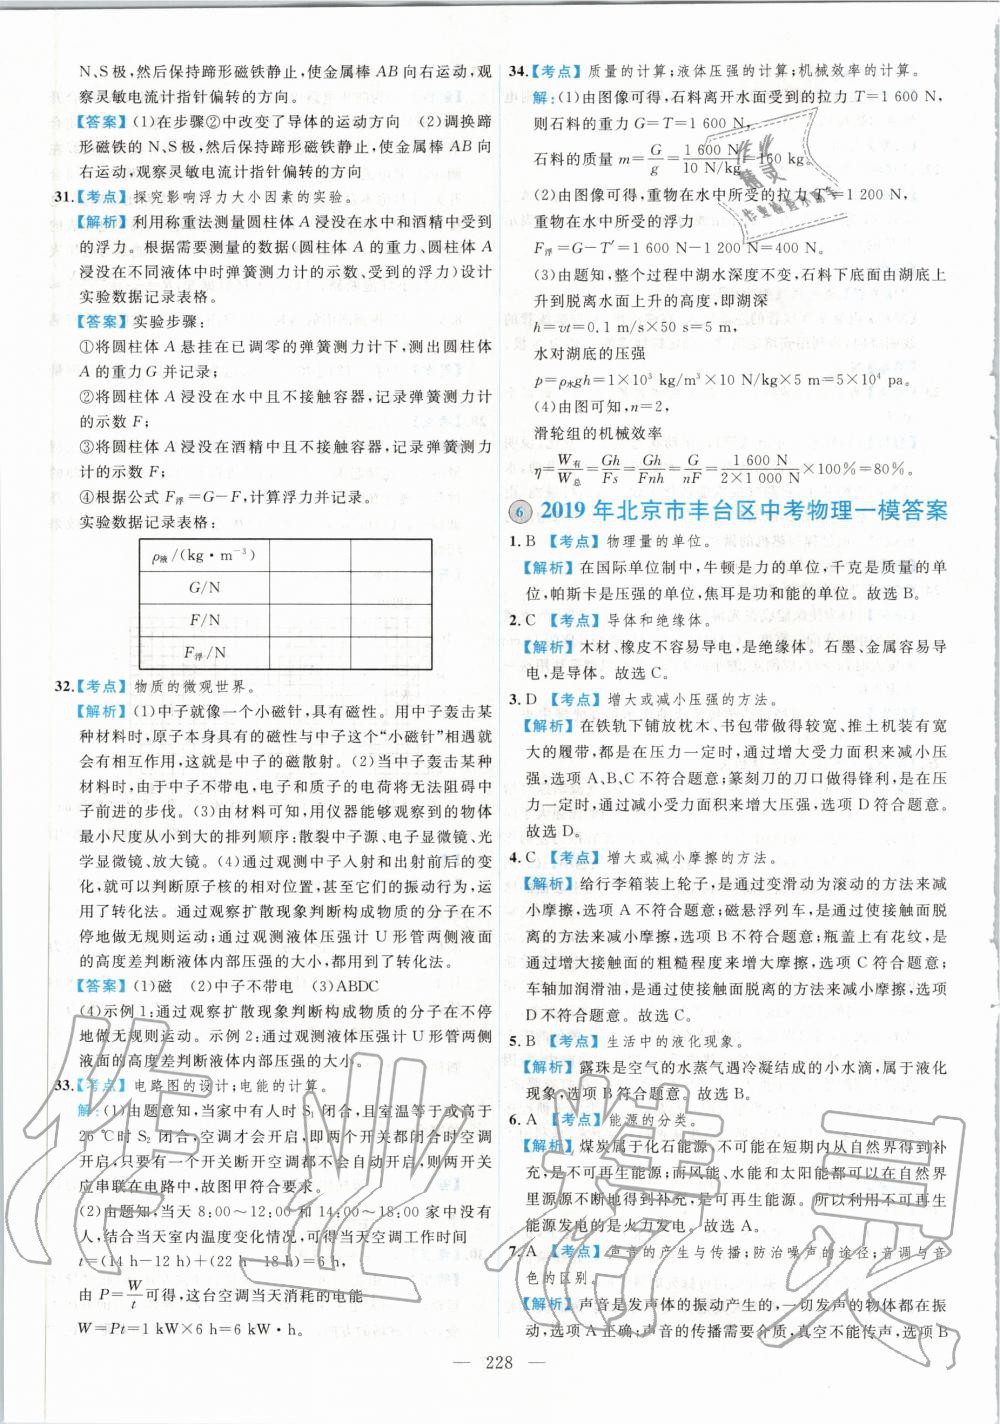 N、S极,然后保持蹄形磁铁静止,使金属棒 AB 向右运动,观
察灵敏电流计指针偏转的方向。
【答案】(1)在步骤②中改变了导体的运动方向 (2)调换蹄
形磁铁的 N、S极,然后保持蹄形磁铁静止,使金属棒 AB 向
右运动,观察灵敏电流计指针偏转的方向
31.【考点】探究影响浮力大小因素的实验。
【解析】利用称重法测量圆柱体 A 浸没在水中和酒精中受到
的浮力。根据需要测量的数据(圆柱体 A 的重力、圆柱体 A
浸没在不同液体中时弹簧测力计的示数、受到的浮力)设计
实验数据记录表格。
【答案】实验步骤:
①将圆柱体 A 悬挂在已调零的弹簧测力计下,测出圆柱体
A 的重力 G 并记录;
②将圆柱体 A 浸没在水中且不接触容器,记录弹簧测力计
的示数 F;
③将圆柱体 A 浸没在酒精中且不接触容器,记录弹簧测力
计的示数 F;
④根据公式 F浮=G-F,计算浮力并记录。
实验数据记录表格:
ρ液/(kg·m⁻³)
G/N
F/N
F浮/N
32.【考点】物质的微观世界。
【解析】(1)中子就像一个小磁针,具有磁性。用中子轰击某
种材料时,原子本身具有的磁性与中子这个“小磁针”就会
会有相互作用,这就是中子的磁散射。(2)当中子轰击某种
材料时,由于中子不带电,电子和质子的电荷将无法阻碍中
子前进的步伐。(3)由材料可知,用仪器能够观察到的物体
最小尺度从小到大的排列顺序:散裂中子源、电子显微镜、光
学显微镜、放大镜。(4)通过观测中子入射和出射前后的变
化,就可以判断原子核的相对位置,甚至它们的振动行为,运
用了转化法。通过观察扩散现象判断构成物质的分子在不
停地做无规则运动;通过观测液体压强计 U 形管两侧液面
的高度差判断液体内部压强的大小,都用到了转化法。
【答案】(1)磁 (2)中子不带电 (3)ABDC
(4)示例 1:通过观察扩散现象判断构成物质的分子在不停
地做无规则运动。示例 2:通过观测液体压强计 U 形管两侧
液面的高度差判断液体内部压强的大小。
33.【考点】电路图的设计;电能的计算。
解:(1)由题意知,当家中有人时 S₁ 闭合,且室温等于或高于
26 ℃时 S₂ 闭合,空调才会开启,即两个开关都闭合时空调
开启,只要有一个开关断开空调都不会自动开启,则两开关
应串联在电路中,故图甲符合要求。
(2)由题知,当天 8:00~12:00 和 14:00~18:00 家中没有
人,结合当天室内温度变化情况,可得当天空调工作时间
t=(14 h-12 h)+(22 h-18 h)=6 h,
由 P=W/t可得,这台空调当天消耗的电能
W=Pt=1 kW×6 h=6 kW·h。
34.【考点】质量的计算;液体压强的计算;机械效率的计算。
解:(1)由图像可得,石料离开水面受到的拉力 T=1 600 N,
则石料的重力 G=T=1 600 N,
石料的质量 m=G/g=1 600 N/10 N/kg=160 kg。
(2)由图像可得,重物在水中所受的拉力 T′=1 200 N,
重物在水中所受的浮力
F浮=G-T′=1 600 N-1 200 N=400 N。
(3)由题知,整个过程中湖水深度不变,石料下底面由湖底上
升到脱离水面上升的高度,即湖深
h=vt=0.1 m/s×50 s=5 m,
水对湖底的压强
p=ρ水gh=1×10³ kg/m³×10 N/kg×5 m=5×10⁴ pa。
(4)由图可知,n=2,
滑轮组的机械效率
η=W有/W总=Gh/Fs=Gh/Fnh=G/nF=1 600 N/2×1 000 N×100%=80%。
6 2019 年北京市丰台区中考物理一模答案
1. B 【考点】物理量的单位。
【解析】在国际单位制中,牛顿是力的单位,千克是质量的单
位,帕斯卡是压强的单位,焦耳是功和能的单位。故选 B。
2. C 【考点】导体和绝缘体。
【解析】木材、橡皮不容易导电,是绝缘体。石墨、金属容易导
电,是导体。故选 C。
3. D 【考点】增大或减小压强的方法。
【解析】在铁轨下铺放枕木、书包带做得较宽、推土机装有宽
大的履带,都在压力一定时,通过增大受力面积来减小压
强,选项 A、B、C 不符合题意;篆刻刀的刀口做得锋利,是在压
力一定时,通过减小受力面积来增大压强,选项 D 符合题意。
故选 D。
4. C 【考点】增大或减小摩擦的方法。
【解析】给行李箱装上轮子,是通过变滑动为滚动的方法来减
小摩擦,选项 A 不符合题意;磁悬浮列车,是使接触面脱离
的方法来减小摩擦,选项 B 不符合题意;瓶盖上有花纹,是
通过增大接触面的粗糙程度来增大摩擦,选项 C 符合题意;
车轴加润滑油,是通过使接触面脱离的方法来减小摩擦,选项
D 不符合题意。故选 C。
5. B 【考点】生活中的液化现象。
【解析】露珠是空气的水蒸气遇冷凝结成的小水滴,属于液化
现象,选项 B 符合题意。故选 B。
6. A 【考点】能源的分类。
【解析】煤炭属于化石能源,不可能在短期内从自然界得到补
充,是不可再生能源;而风能、水能和太阳能都可以在自然界
里源源不断地得到补充,是可再生能源。所以利用不可再生
能源的是火力发电。故选 A。
7. A 【考点】声音的产生与传播;防治噪声的途径;音调与音
色的区别。
【解析】声音是发声体的振动产生的,一切发声的物体都在振
动,选项 A 正确;声音的传播需要介质,真空不能传声,选项 B
— 228 —
作业精灵